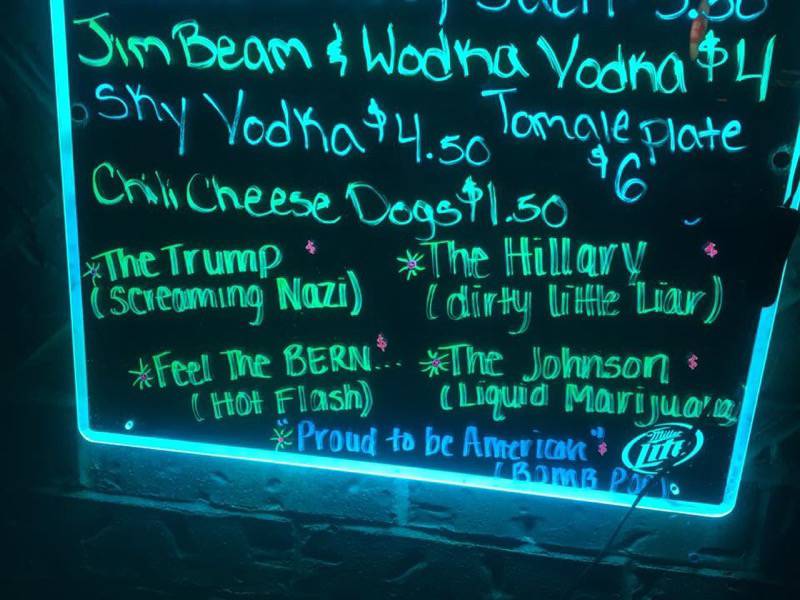 Jim Beam & Wodka Vodka $4
Sky Vodka $4.50
Tamale plate
$6
Chili Cheese Dogs $1.50
*The Trump $
(Screaming Nazi)
*The Hillary $
(dirty little Liar)
*Feel The BERN... $
(Hot Flash)
*The Johnson $
(Liquid Marijuana)
*"Proud to be American" $
(Bomb Pop)
Miller
Lite